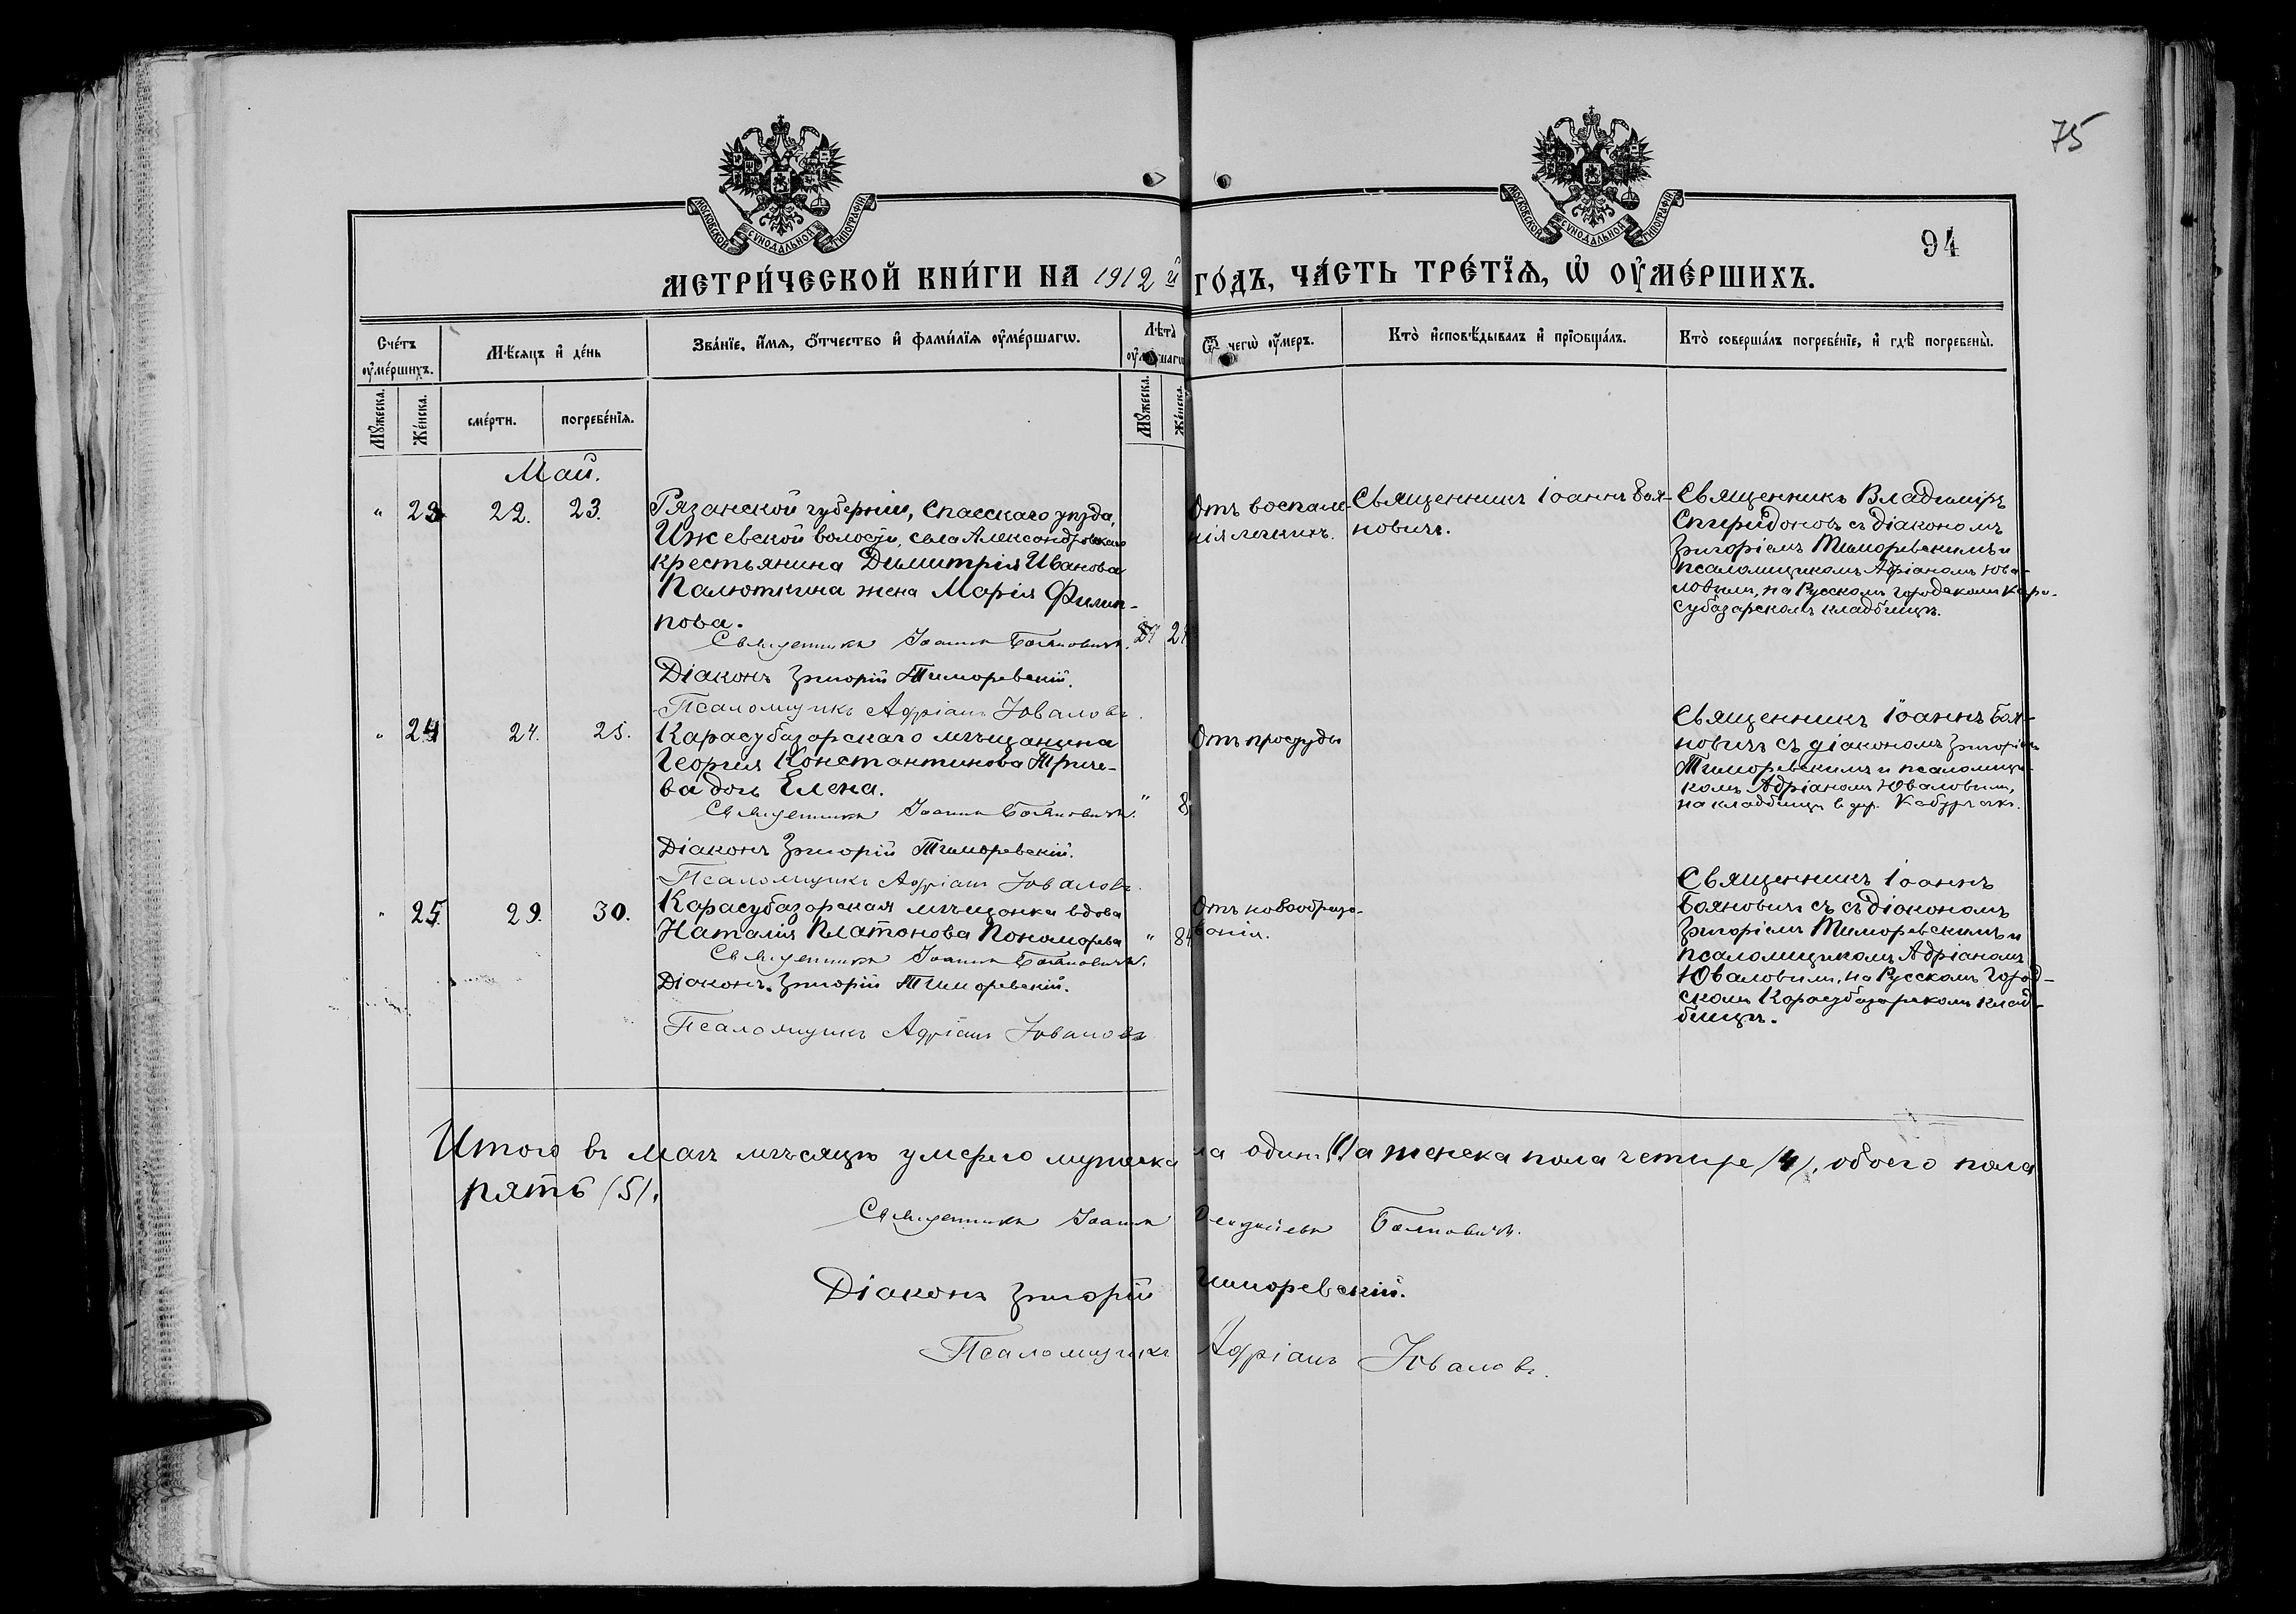 75
94
МОСКОВСКОЙ СѴНОДАЛЬНОЙ ТИПОГРАФІИ
МОСКОВСКОЙ СѴНОДАЛЬНОЙ ТИПОГРАФІИ
МЕТРИ́ЧЕСКОЙ КНИ́ГИ НА 1912 й ГО́ДЪ, ЧА́СТЬ ТРЕ́ТЇѦ, Ѡ҆ ОУ҆МЕ́РШИХЪ.
Сче́тъ оу҆ме́ршихъ.
Мѣ́сяцъ и҆ де́нь
Зва́нїе, и҆́мѧ, ѻ҆́тчество и҆ фами́лїѧ оу҆ме́ршагѡ.
Лѣ́та
Ѿ чегѡ̀ оу҆́меръ.
Кто̀ и҆сповѣ́дывалъ и҆ прїѻбща́лъ.
Кто̀ соверша́лъ погребе́нїе, и҆ гдѣ̀ погребены̀.
Мꙋ́жеска.
Же́нска.
сме́рти.
погребе́нїѧ.
Мꙋ́жеска.
Же́нска.
Май.
" 23 22. 23.
Рязанской губерніи, Спасскаго уѣзда,
Ижевской волости, села Александровскаго
крестьянина Димитрія Иванова
Палюткина жена Марія Филип-
пова.
Священникъ Іоаннъ Бояновичъ.
Діаконъ Григорій Тиморевскій.
Псаломщикъ Адріанъ Юваловъ.
Отъ воспале-
нія легкихъ.
Священникъ Іоаннъ Боя-
новичъ.
Священникъ Владиміръ
Спиридоновъ съ діакономъ
Григоріемъ Тиморевскимъ и
псаломщикомъ Адріаномъ Юва-
ловымъ, на Русскомъ городскомъ Кара-
субазарскомъ кладбищѣ.
" 24 24. 25.
Карасубазарскаго мѣщанина
Георгія Константинова Триче-
ва дочь Елена.
" 8
Священникъ Іоаннъ Бояновичъ.
Діаконъ Григорій Тиморевскій.
Псаломщикъ Адріанъ Юваловъ.
Отъ простуды
Священникъ Іоаннъ Боя-
новичъ съ діакономъ Григоріемъ
Тиморевскимъ и псаломщи-
комъ Адріаномъ Юваловымъ,
на кладбищѣ в дер.
" 25. 29. 30.
Карасубазарская мѣщанка вдова
Наталія Платонова Пономарева
" 84
Священникъ Іоаннъ Бояновичъ.
Діаконъ Григорій Тиморевскій.
Псаломщикъ Адріанъ Юваловъ
Отъ новообразо-
ванія.
Священникъ Іоаннъ
Бояновичъ съ съ діакономъ
Григоріемъ Тиморевскимъ и
псаломщикомъ Адріаномъ
Юваловымъ, на Русскомъ город-
скомъ Карасубазарскомъ клад-
бищѣ.
Итого въ маѣ мѣсяцѣ умерло мужеска ла одинъ (1) а женска пола четыре (4), обоего пола
пять (5).
Священникъ Іоаннъ Бояновичъ.
Діаконъ Григорій Тиморевскій.
Псаломщикъ Адріанъ Юваловъ.